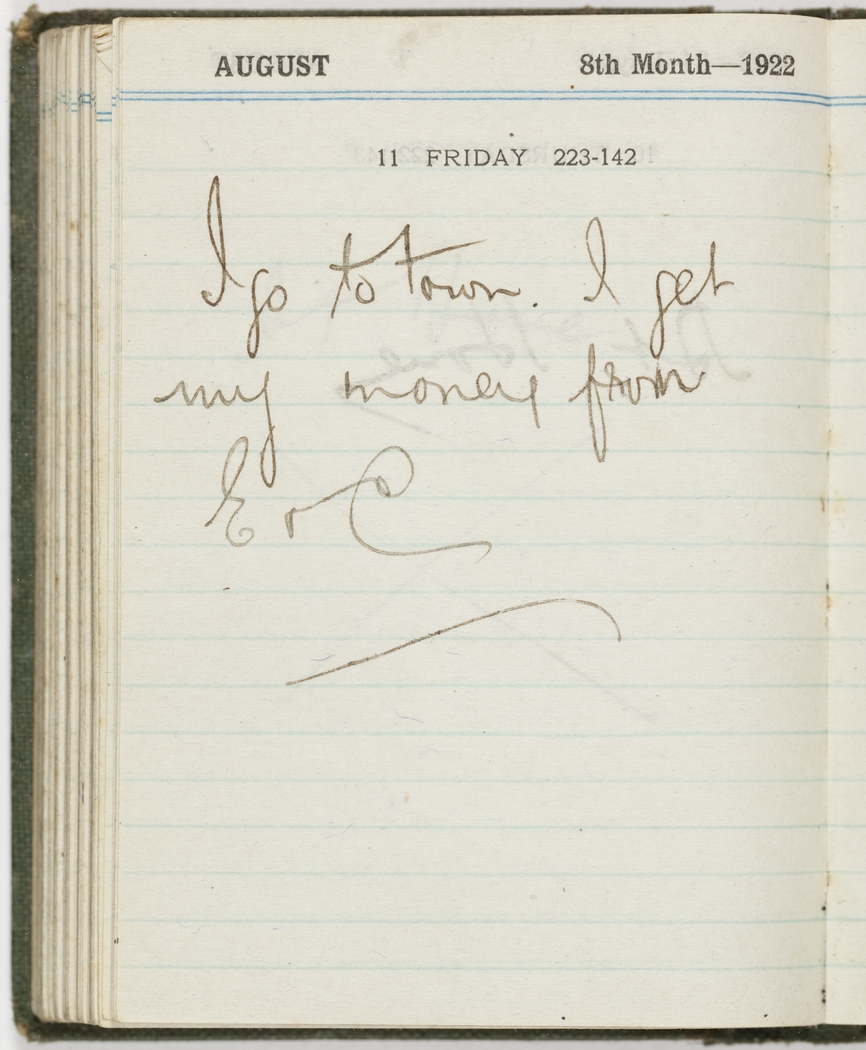 AUGUST 8th Month—1922
11 FRIDAY 223-142
I go to town. I get
my money from
E & C